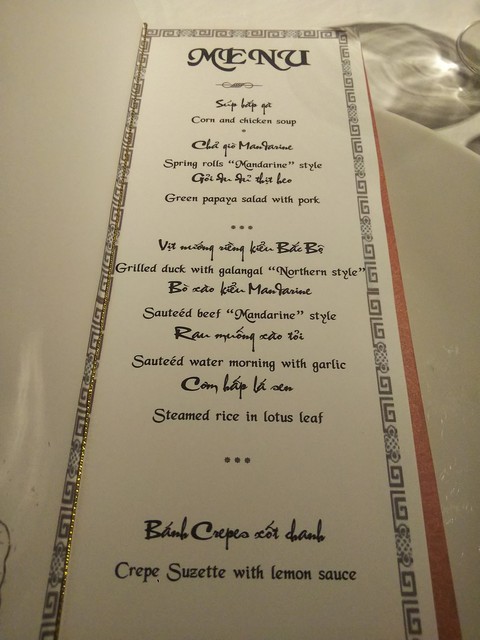 MENU
Súp bắp gà
Corn and chicken soup
*
Chả giò Mandarine
Spring rolls “Mandarine” style
Gỏi đu đủ thịt heo
Green papaya salad with pork
***
Vịt nướng riềng kiểu Bắc Bộ
Grilled duck with galangal “Northern style”
Bò xào kiểu Mandarine
Sauteéd beef “Mandarine” style
Rau muống xào tỏi
Sauteéd water morning with garlic
Cơm hấp lá sen
Steamed rice in lotus leaf
***
Bánh Crepes xốt chanh
Crepe Suzette with lemon sauce